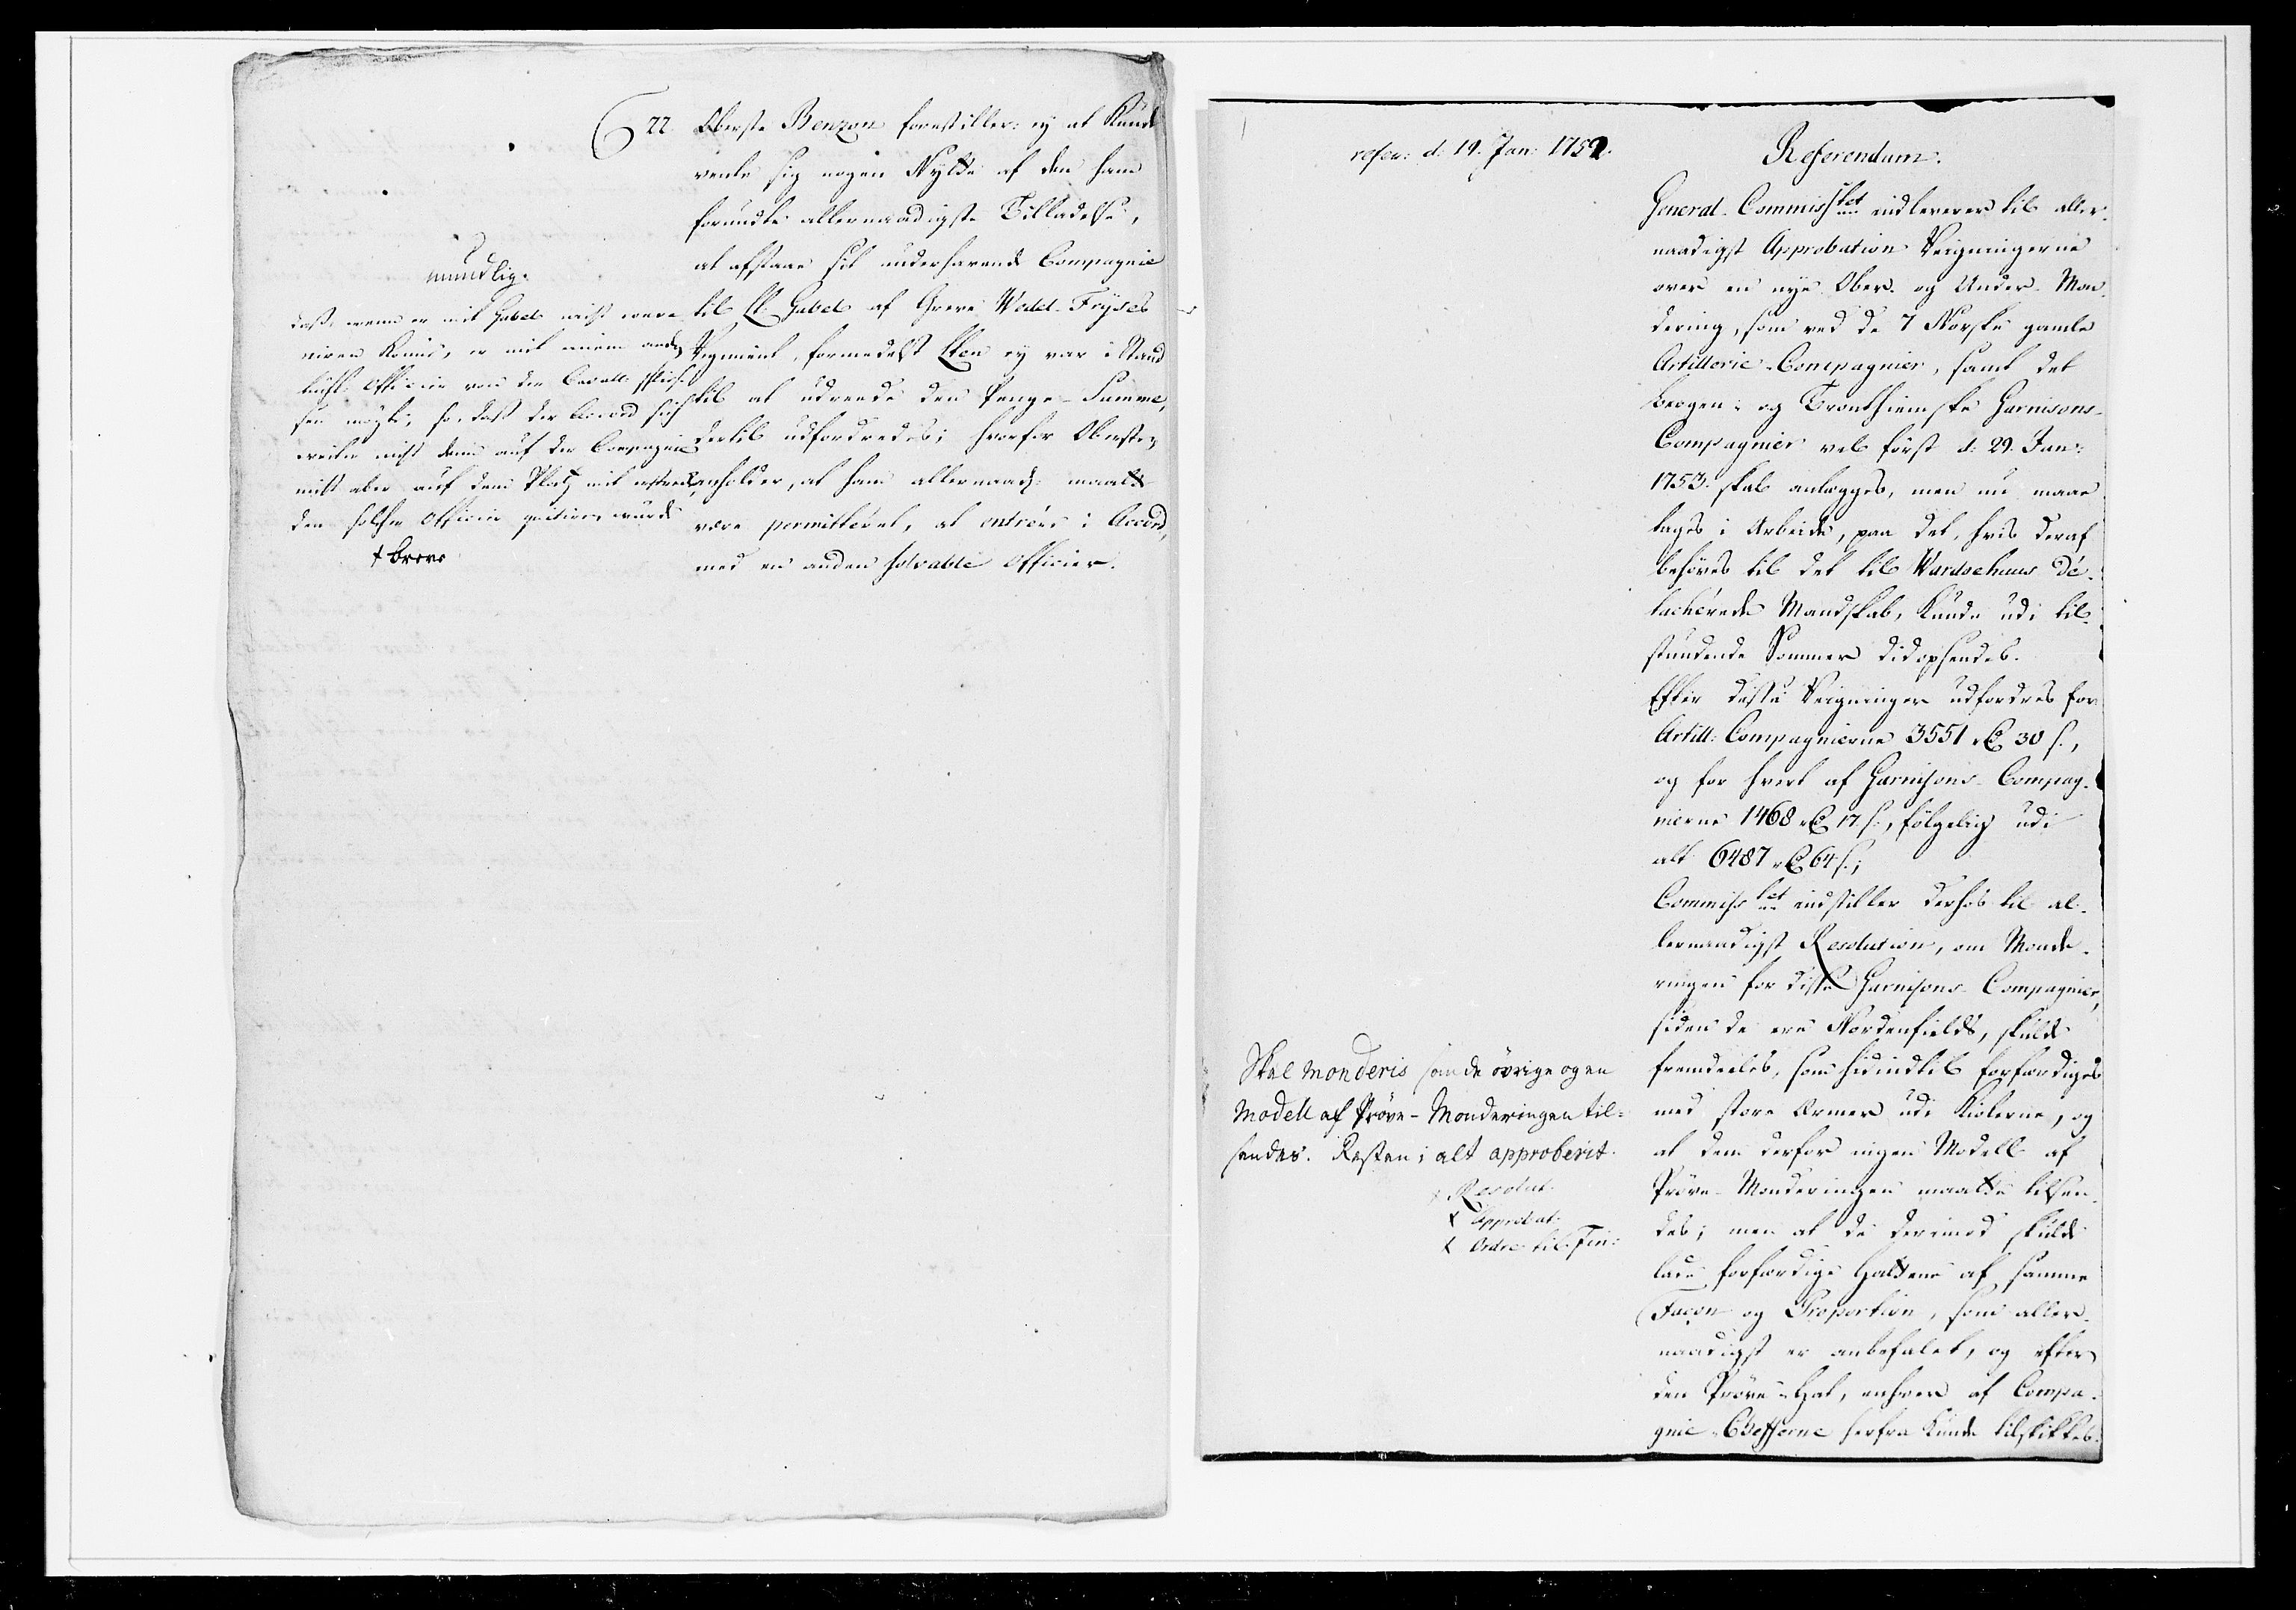 22. Oberste Benzon forestiller: ey at kunde
vente sig nogen Nytte af den ham
forundte allernaadigste Tilladelse,
at afstaae sit underhavende Compagnie
til Lt. Gabel af Greve Wedel-Frÿses
Regiment, formedelst Lten ey var i Stand
til at udreede den Penge-Summe,
dertil udfordredes; hvorfor Obersten
anholder, at ham allernaad: maatte
være permitteret, at entrére i Accord,
med en anden solvable Officier.
mundlig.
daß, wenn er mit Gabel nicht 
 könne, er mit einem andern
 Officier von der Cavall: 
 mögte, so, daß der Accord sich
weiter nicht denn auf der Compagnie
mist aber auf dem Platz mit 
den solcher Officier quitiren würde
+ breve
refer: d: 19. Jan: 1752.
Referendum.
General-Commiss: let indleverer til aller-
naadigst Approbation Reigningerne
over en nye Ober- og Under-Mon-
dering, som ved de 7 Norske gamle
Artillerie-Compagnier, samt det
Bergen- og Tronthiemske Garnisons-
Compagnier vel først d: 29. Jan:
1753. skal anlægges, men nu maae
tages i Arbeide, paa det, hvis deraf
behøves til det til Wardoehuus dé-
tacherede Mandskab, kunde udi til-
stundende Sommer didopsendes.
Efter disse Reigninger udfordres for
Artill: Compagnierne 3551 rC 30 s.,
og for hvert af Garnisons-Compag-
nierne 1468 rC 17 s., følgelig udi
alt 6487 rC 64 s.;
Commiss let indstiller derhos til al-
lernaadigst Resolution, om Monde-
ringen for disse Garnisons-Compagnier,
siden de ere Nordenfields, skulde
fremdeeles, som hidindtil forfærdiges
med store Ermer udi Kiolerne, og
at dem derfor ingen Modell af
Prøve-Monderingen maatte tilsen-
des; men at de derimod skulde
lade forfærdige Hattene af samme
Façon og Proportion, som aller-
naadigst er anbefalet, og efter
den Prøve-Hat, enhver af Compa-
gnie-Chefferne herfra kunde tilskikkes.
Skal Monderis som de øvrige og en
Modell af Prøve-Monderingen til-
sendes. Resten i alt approberit.
+ Resolut.
+ Approbat:
+ Ordre til Fin: